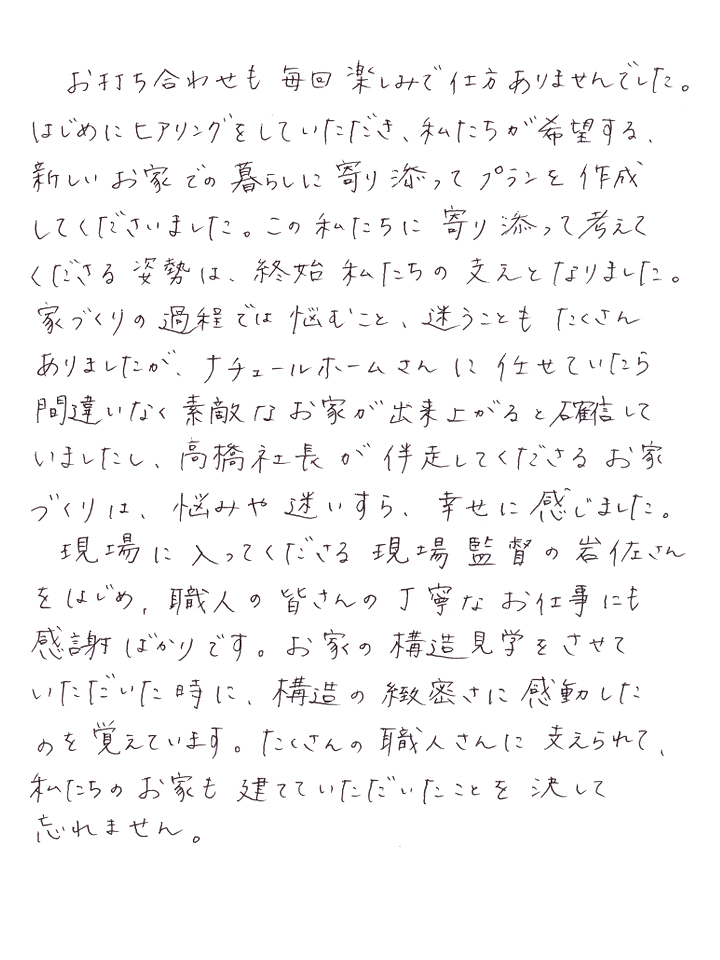 お打ち合わせも毎回楽しみで仕方ありませんでした。
はじめにヒアリングをしていただき、私たちが希望する、
新しいお家での暮らしに寄り添ってプランを作成
してくださいました。この私たちに寄り添って考えて
くださる姿勢は、終始私たちの支えとなりました。
家づくりの過程では悩むこと、迷うこともたくさん
ありましたが、ナチュールホームさんに任せていたら
間違いなく素敵なお家が出来上がると確信して
いましたし、高橋社長が伴走してくださるお家
づくりは、悩みや迷いすら、幸せに感じました。
現場に入ってくださる現場監督の岩佐さん
をはじめ、職人の皆さんの丁寧なお仕事にも
感謝ばかりです。お家の構造見学をさせて
いただいた時に、構造の緻密さに感動した
のを覚えています。たくさんの職人さんに支えられて、
私たちのお家も建てていただいたことを決して
忘れません。